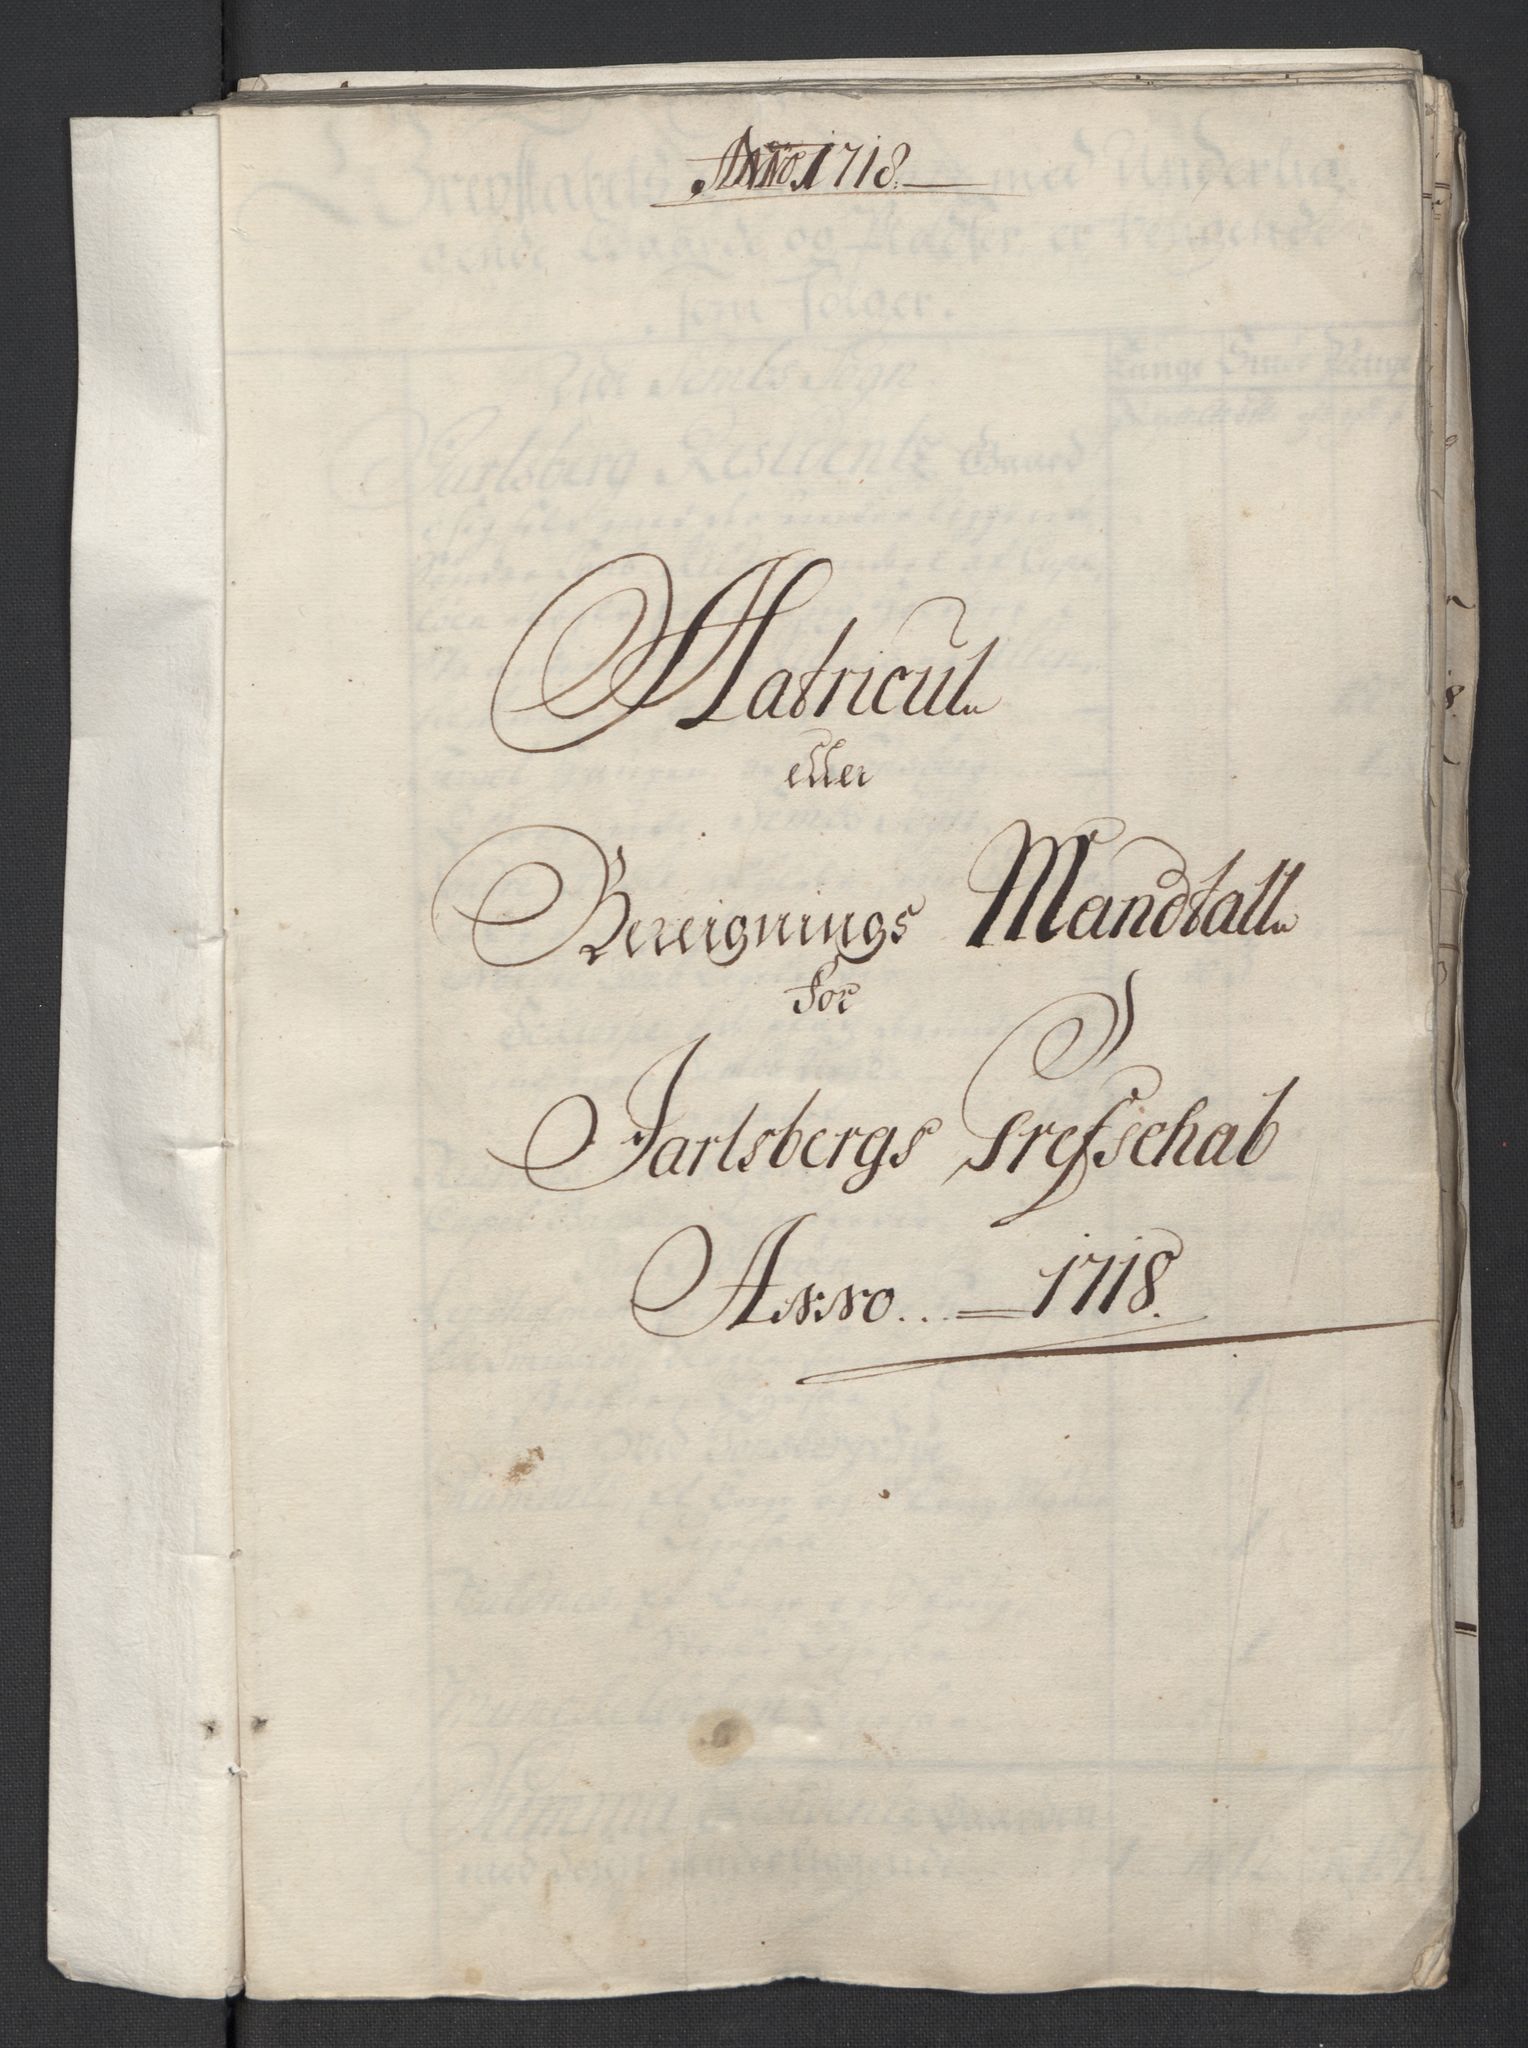 Anno 1718.
Matricul
eller
Bereignings Mandtall
for
Jarlsbergs Grefschab
Anno... 1718.